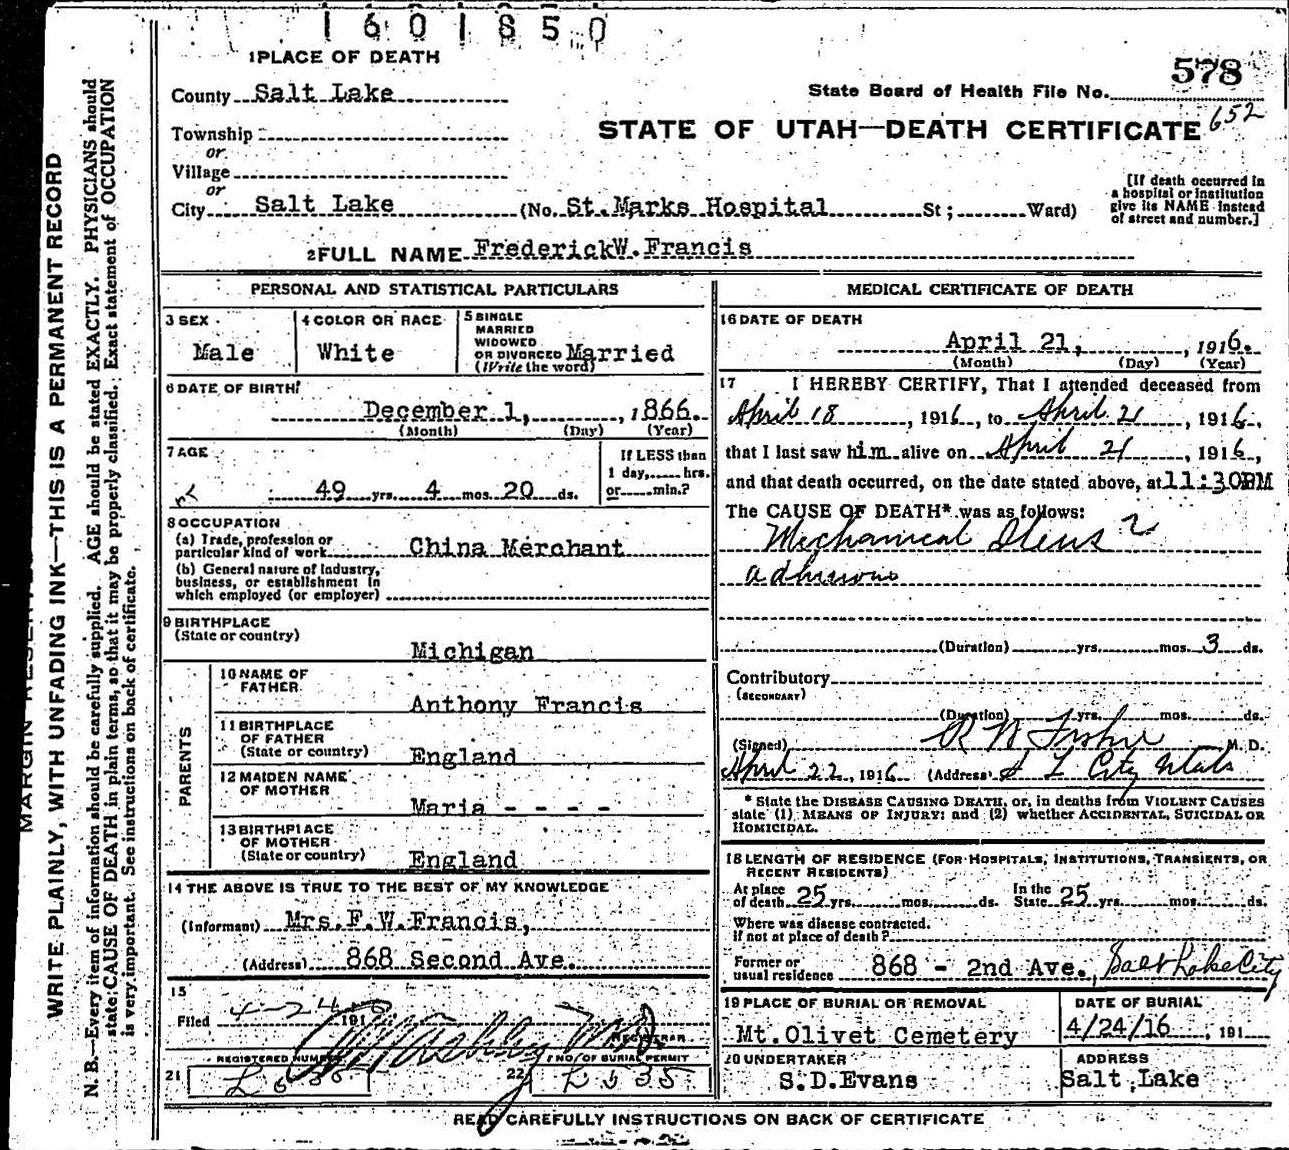 1601850
1 PLACE OF DEATH
578
County Salt Lake
State Board of Health File No.
652
Township
STATE OF UTAH—DEATH CERTIFICATE
or
Village
or
City Salt Lake (No. St. Marks Hospital St; Ward)
[If death occurred in
a hospital or institution
give its NAME instead
of street and number.]
2 FULL NAME FrederickW. Francis
PERSONAL AND STATISTICAL PARTICULARS
3 SEX
Male
4 COLOR OR RACE
White
5 SINGLE
MARRIED
WIDOWED
OR DIVORCED Married
(Write the word)
6 DATE OF BIRTH
December 1, , 1866.
(Month) (Day) (Year)
7 AGE
49 yrs. 4 mos. 20 ds.
If LESS than
1 day, hrs.
or min.?
8 OCCUPATION
(a) Trade, profession or
particular kind of work China Merchant
(b) General nature of industry,
business, or establishment in
which employed (or employer)
9 BIRTHPLACE
(State or country)
Michigan
PARENTS
10 NAME OF
FATHER
Anthony Francis
11 BIRTHPLACE
OF FATHER
(State or country)
England
12 MAIDEN NAME
OF MOTHER
Maria - - - -
13 BIRTHPLACE
OF MOTHER
(State or country)
England
14 THE ABOVE IS TRUE TO THE BEST OF MY KNOWLEDGE
(Informant) Mrs.F.W.Francis,
(Address) 868 Second Ave.
15
Filed 4-24- 191
REGISTRAR
REGISTERED NUMBER
NO. OF BURIAL PERMIT
21
22
MEDICAL CERTIFICATE OF DEATH
16 DATE OF DEATH
April 21, , 1916.
(Month) (Day) (Year)
17 I HEREBY CERTIFY, That I attended deceased from
April 18 , 1916, to April 21 , 1916,
that I last saw him alive on April 21 , 1916,
and that death occurred, on the date stated above, at 11:30PM
The CAUSE OF DEATH* was as follows:
Mechanical Ileus
adhesions
(Duration) yrs. mos. 3 ds.
Contributory
(SECONDARY)
(Duration) yrs. mos. ds.
(Signed) M. D.
April 22, 1916 (Address) S L City Utah
* State the DISEASE CAUSING DEATH, or, in deaths from VIOLENT CAUSES
state (1) MEANS OF INJURY; and (2) whether ACCIDENTAL, SUICIDAL OR
HOMICIDAL.
18 LENGTH OF RESIDENCE (FOR HOSPITALS, INSTITUTIONS, TRANSIENTS, OR
RECENT RESIDENTS)
At place
of death 25 yrs. mos. ds.
In the
State 25 yrs. mos. ds.
Where was disease contracted.
If not at place of death?
Former or
usual residence 868 - 2nd Ave., Salt Lake City
19 PLACE OF BURIAL OR REMOVAL
Mt. Olivet Cemetery
DATE OF BURIAL
4/24/16 , 191
20 UNDERTAKER
S.D.Evans
ADDRESS
Salt Lake
READ CAREFULLY INSTRUCTIONS ON BACK OF CERTIFICATE
WRITE PLAINLY, WITH UNFADING INK—THIS IS A PERMANENT RECORD
N. B.—Every item of information should be carefully supplied. AGE should be stated EXACTLY. PHYSICIANS should
state CAUSE OF DEATH in plain terms, so that it may be properly classified. Exact statement of OCCUPATION
is very important. See instructions on back of certificate.